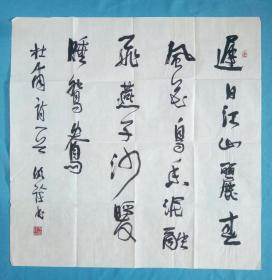 遲日江山麗春
風花鳥香泥融
飛燕子沙暖
睡鴛鴦
杜甫詩一首